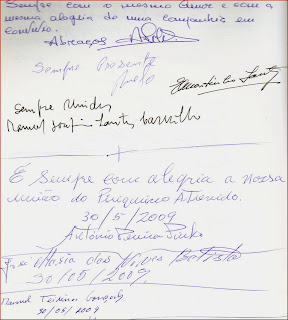 Sempre com o mesmo amor e com a
mesma alegria de uma companhia em
convívio.
Abraços
Sempre Presente
Sempre Unidos
Manuel Joaquim Santos Carrilho
É Sempre com alegria a nossa
união do Periquito Atrevido.
30/5/2009
António Pereira Pinto
Maria das Neves Batista
30/05/2009.
Manuel Teixeira
30/05/2009